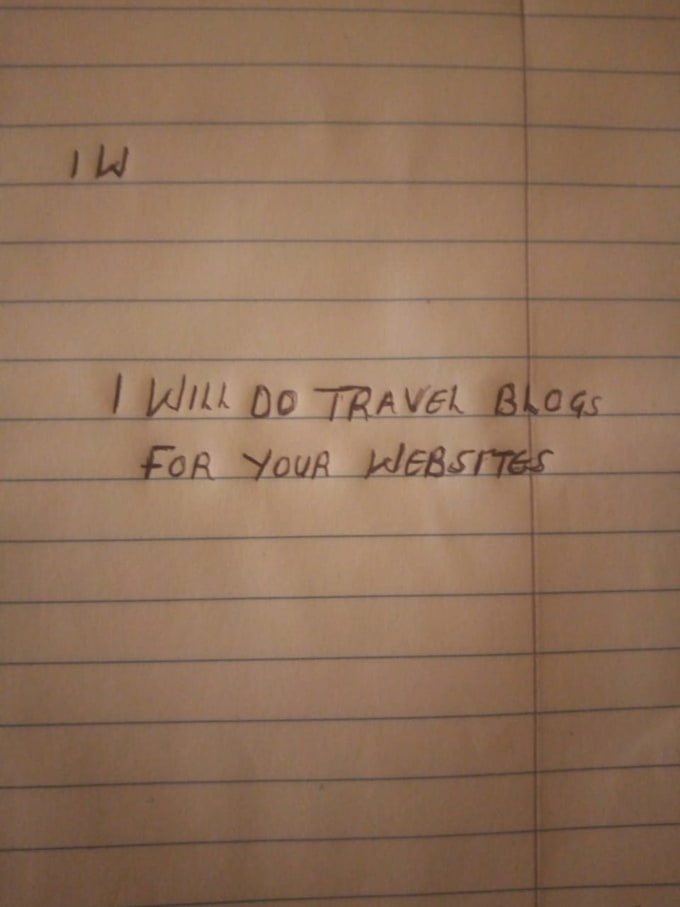 I W
I WILL DO TRAVEL BLOGS
FOR YOUR WEBSITES